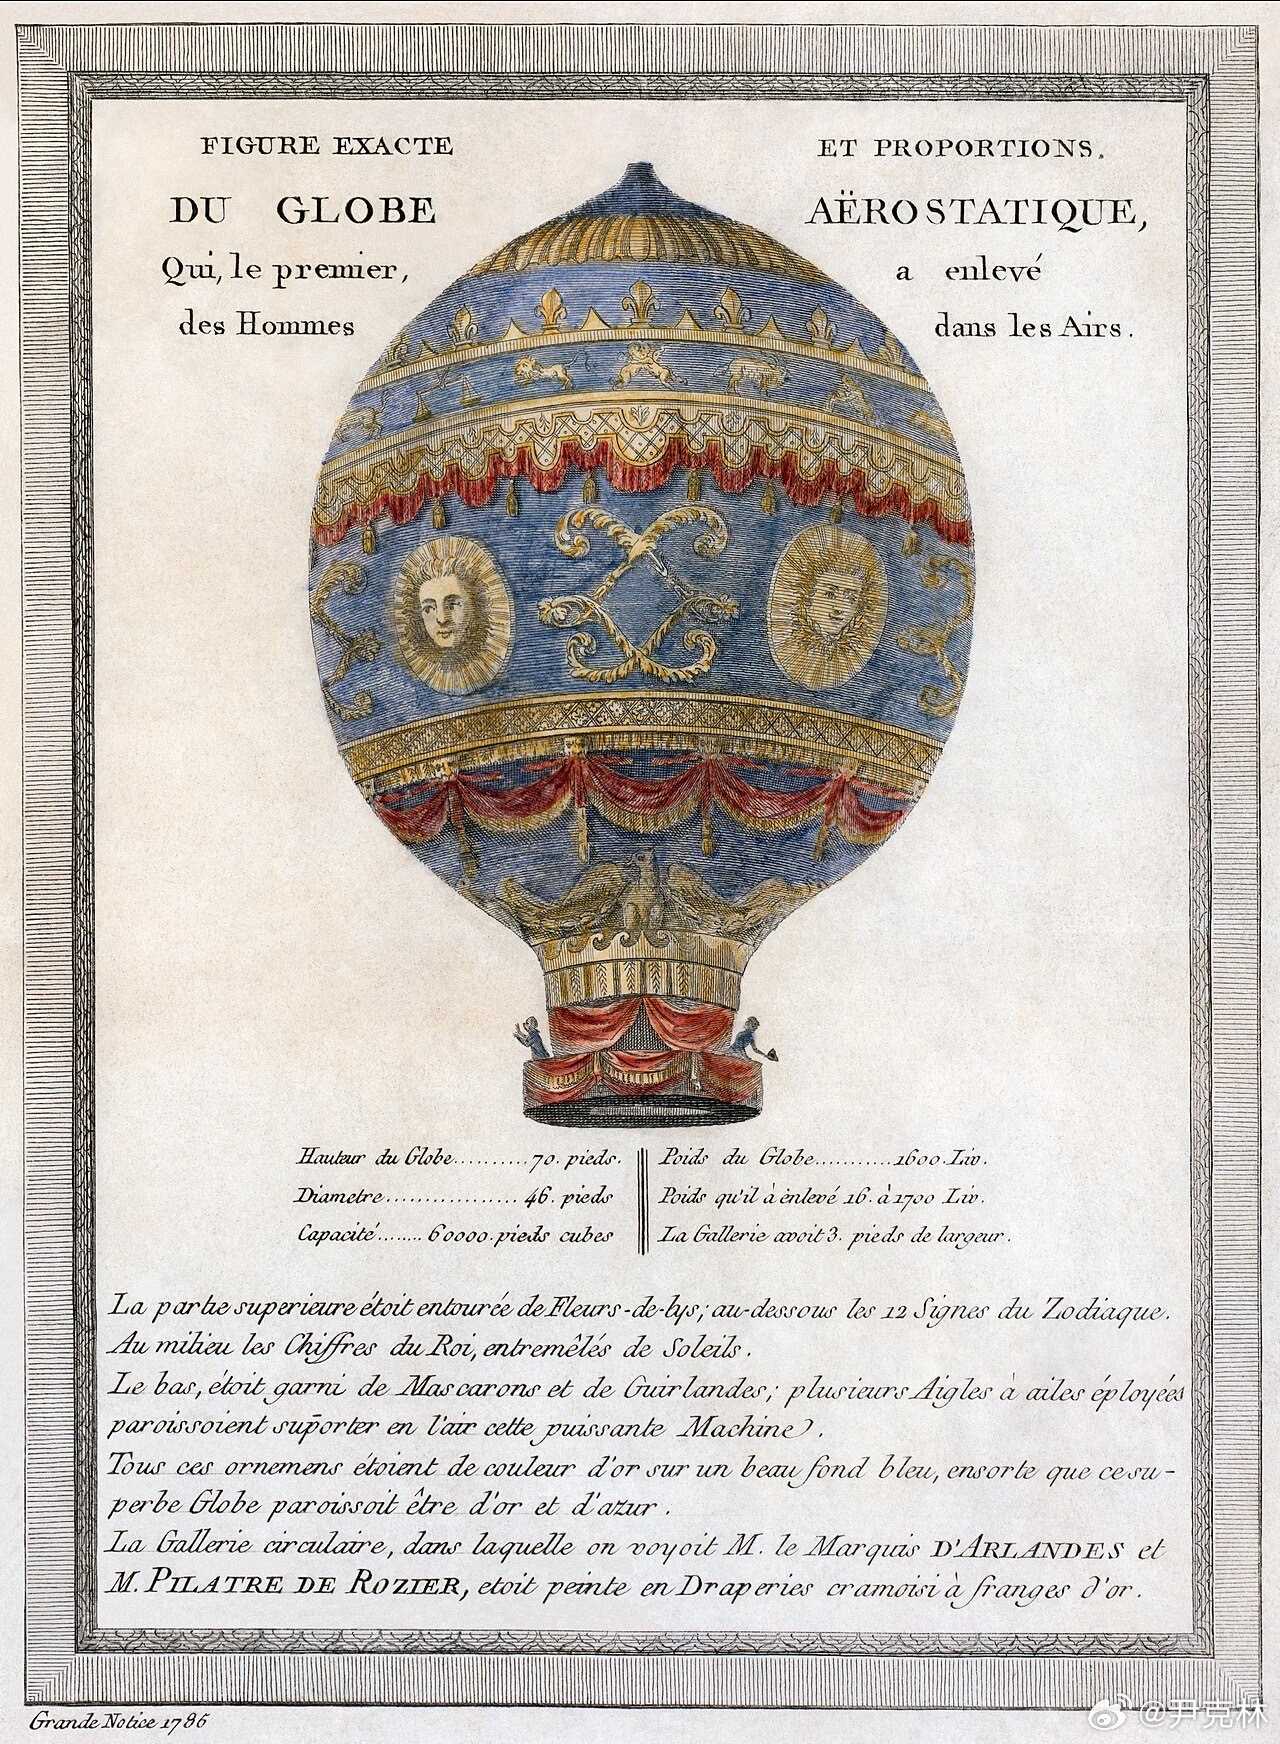 FIGURE EXACTE ET PROPORTIONS.
DU GLOBE AËROSTATIQUE,
Qui, le premier, a enlevé
des Hommes dans les Airs.
Hauteur du Globe..........70. pieds.
Diametre.................. 46. pieds
Capacité........ 60000. pieds cubes
Poids du Globe...........1600. Liv.
Poids qu'il à ènlevé 16. à 1700 Liv.
La Gallerie avoit 3. pieds de largeur.
La partie superieure étoit entourée de Fleurs-de-lys; au-dessous les 12 Signes du Zodiaque.
Au milieu les Chiffres du Roi, entremêlés de Soleils.
Le bas, étoit garni de Mascarons et de Guirlandes; plusieurs Aigles à ailes éployées
paroissoient sup̄orter en l'air cette puissante Machine.
Tous ces ornemens étoient de couleur d'or sur un beau fond bleu, ensorte que ce su-
perbe Globe paroissoit être d'or et d'azur.
La Gallerie circulaire, dans laquelle on voyoit M. le Marquis D'ARLANDES et
M. PILATRE DE ROZIER, etoit peinte en Draperies cramoisi à franges d'or.
Grande Notice 1786
@尹克林